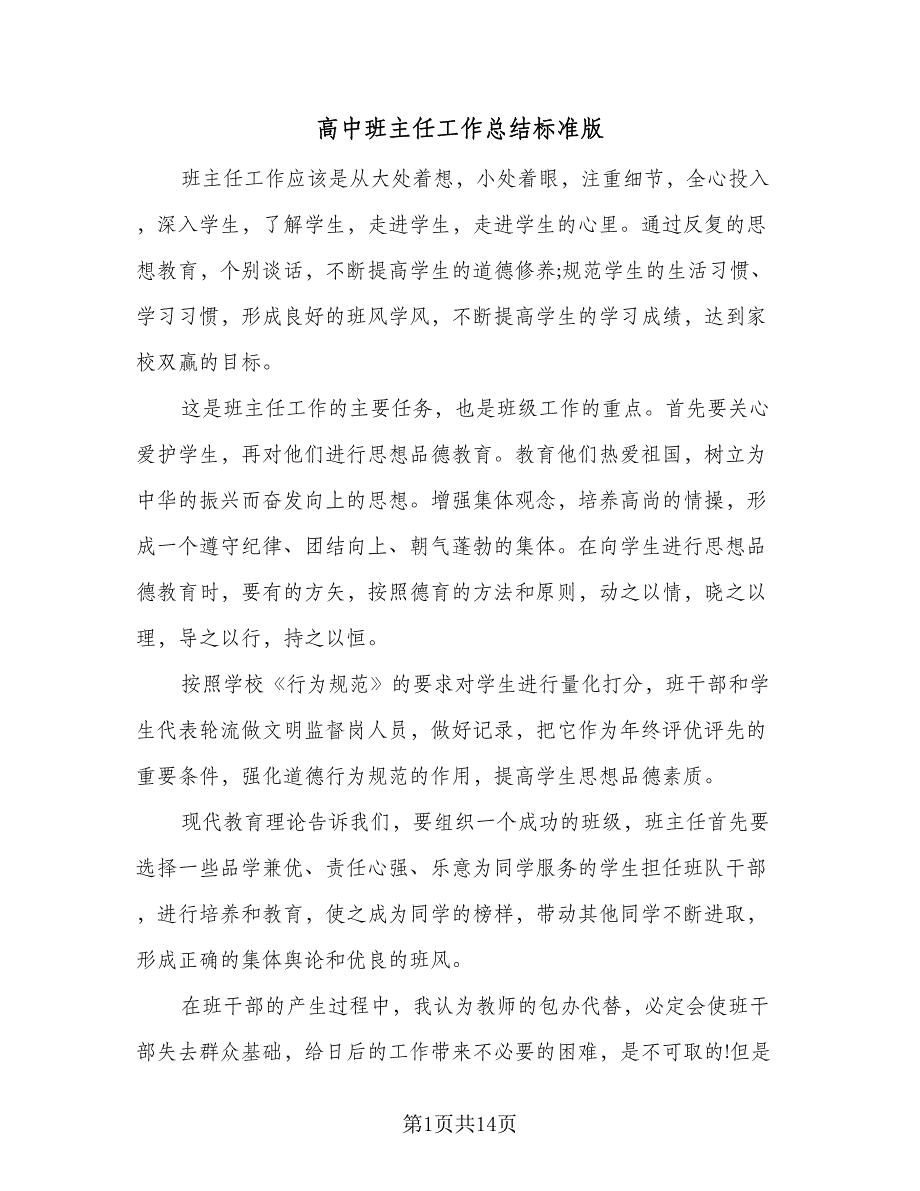 高中班主任工作总结标准版
班主任工作应该是从大处着想，小处着眼，注重细节，全心投入
，深入学生，了解学生，走进学生，走进学生的心里。通过反复的思
想教育，个别谈话，不断提高学生的道德修养;规范学生的生活习惯、
学习习惯，形成良好的班风学风，不断提高学生的学习成绩，达到家
校双赢的目标。
这是班主任工作的主要任务，也是班级工作的重点。首先要关心
爱护学生，再对他们进行思想品德教育。教育他们热爱祖国，树立为
中华的振兴而奋发向上的思想。增强集体观念，培养高尚的情操，形
成一个遵守纪律、团结向上、朝气蓬勃的集体。在向学生进行思想品
德教育时，要有的方矢，按照德育的方法和原则，动之以情，晓之以
理，导之以行，持之以恒。
按照学校《行为规范》的要求对学生进行量化打分，班干部和学
生代表轮流做文明监督岗人员，做好记录，把它作为年终评优评先的
重要条件，强化道德行为规范的作用，提高学生思想品德素质。
现代教育理论告诉我们，要组织一个成功的班级，班主任首先要
选择一些品学兼优、责任心强、乐意为同学服务的学生担任班队干部
，进行培养和教育，使之成为同学的榜样，带动其他同学不断进取，
形成正确的集体舆论和优良的班风。
在班干部的产生过程中，我认为教师的包办代替，必定会使班干
部失去群众基础，给日后的工作带来不必要的困难，是不可取的!但是
第1页共14页